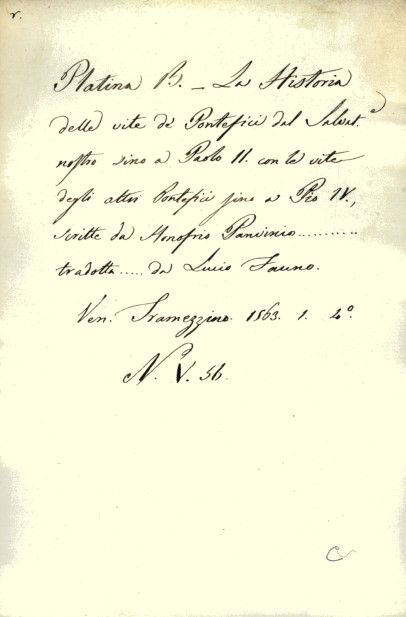 r.
Platina B. _ La Historia
delle vite de' Pontefici dal Salvat.e
nostro sino a Paolo II. con le vite
degli altri Pontefici sino a Pio IV.,
scritte da Honofrio Panvinio...........
tradotta..... da Lucio Fauno.
Ven. Tramezzino. 1563. 1. 4°.
N. V. 56.
C